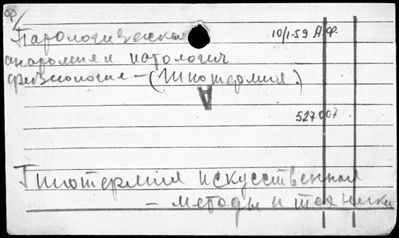 Ф/
Патологическая 10/I-59 А.Ф.
анатомия и патологич
физиология - (Гипотермия.)
А
527007
Гипотермия искусственная
- методы и техника